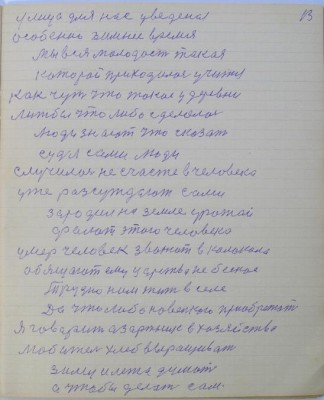 13
улица для нас уведена
особенно зимнее время
мы вся молодост такая
которой приходилос учитя
как чут что такое у деревни
либо сделалос
люди знают что сказат
судя сами люди
случилос не счасте в человека
уже разсуждают сами
зародил на земле урожай
фалют этого человека
умер человек звонют в колокола
обящают ему царства небесное
Трудно нам жит в селе
Да что либо новенкого приобретат
Я говарит азартник в хозяйства
мобител хлеб выращиват
зиму и лета думат
а чтобы делат сам.